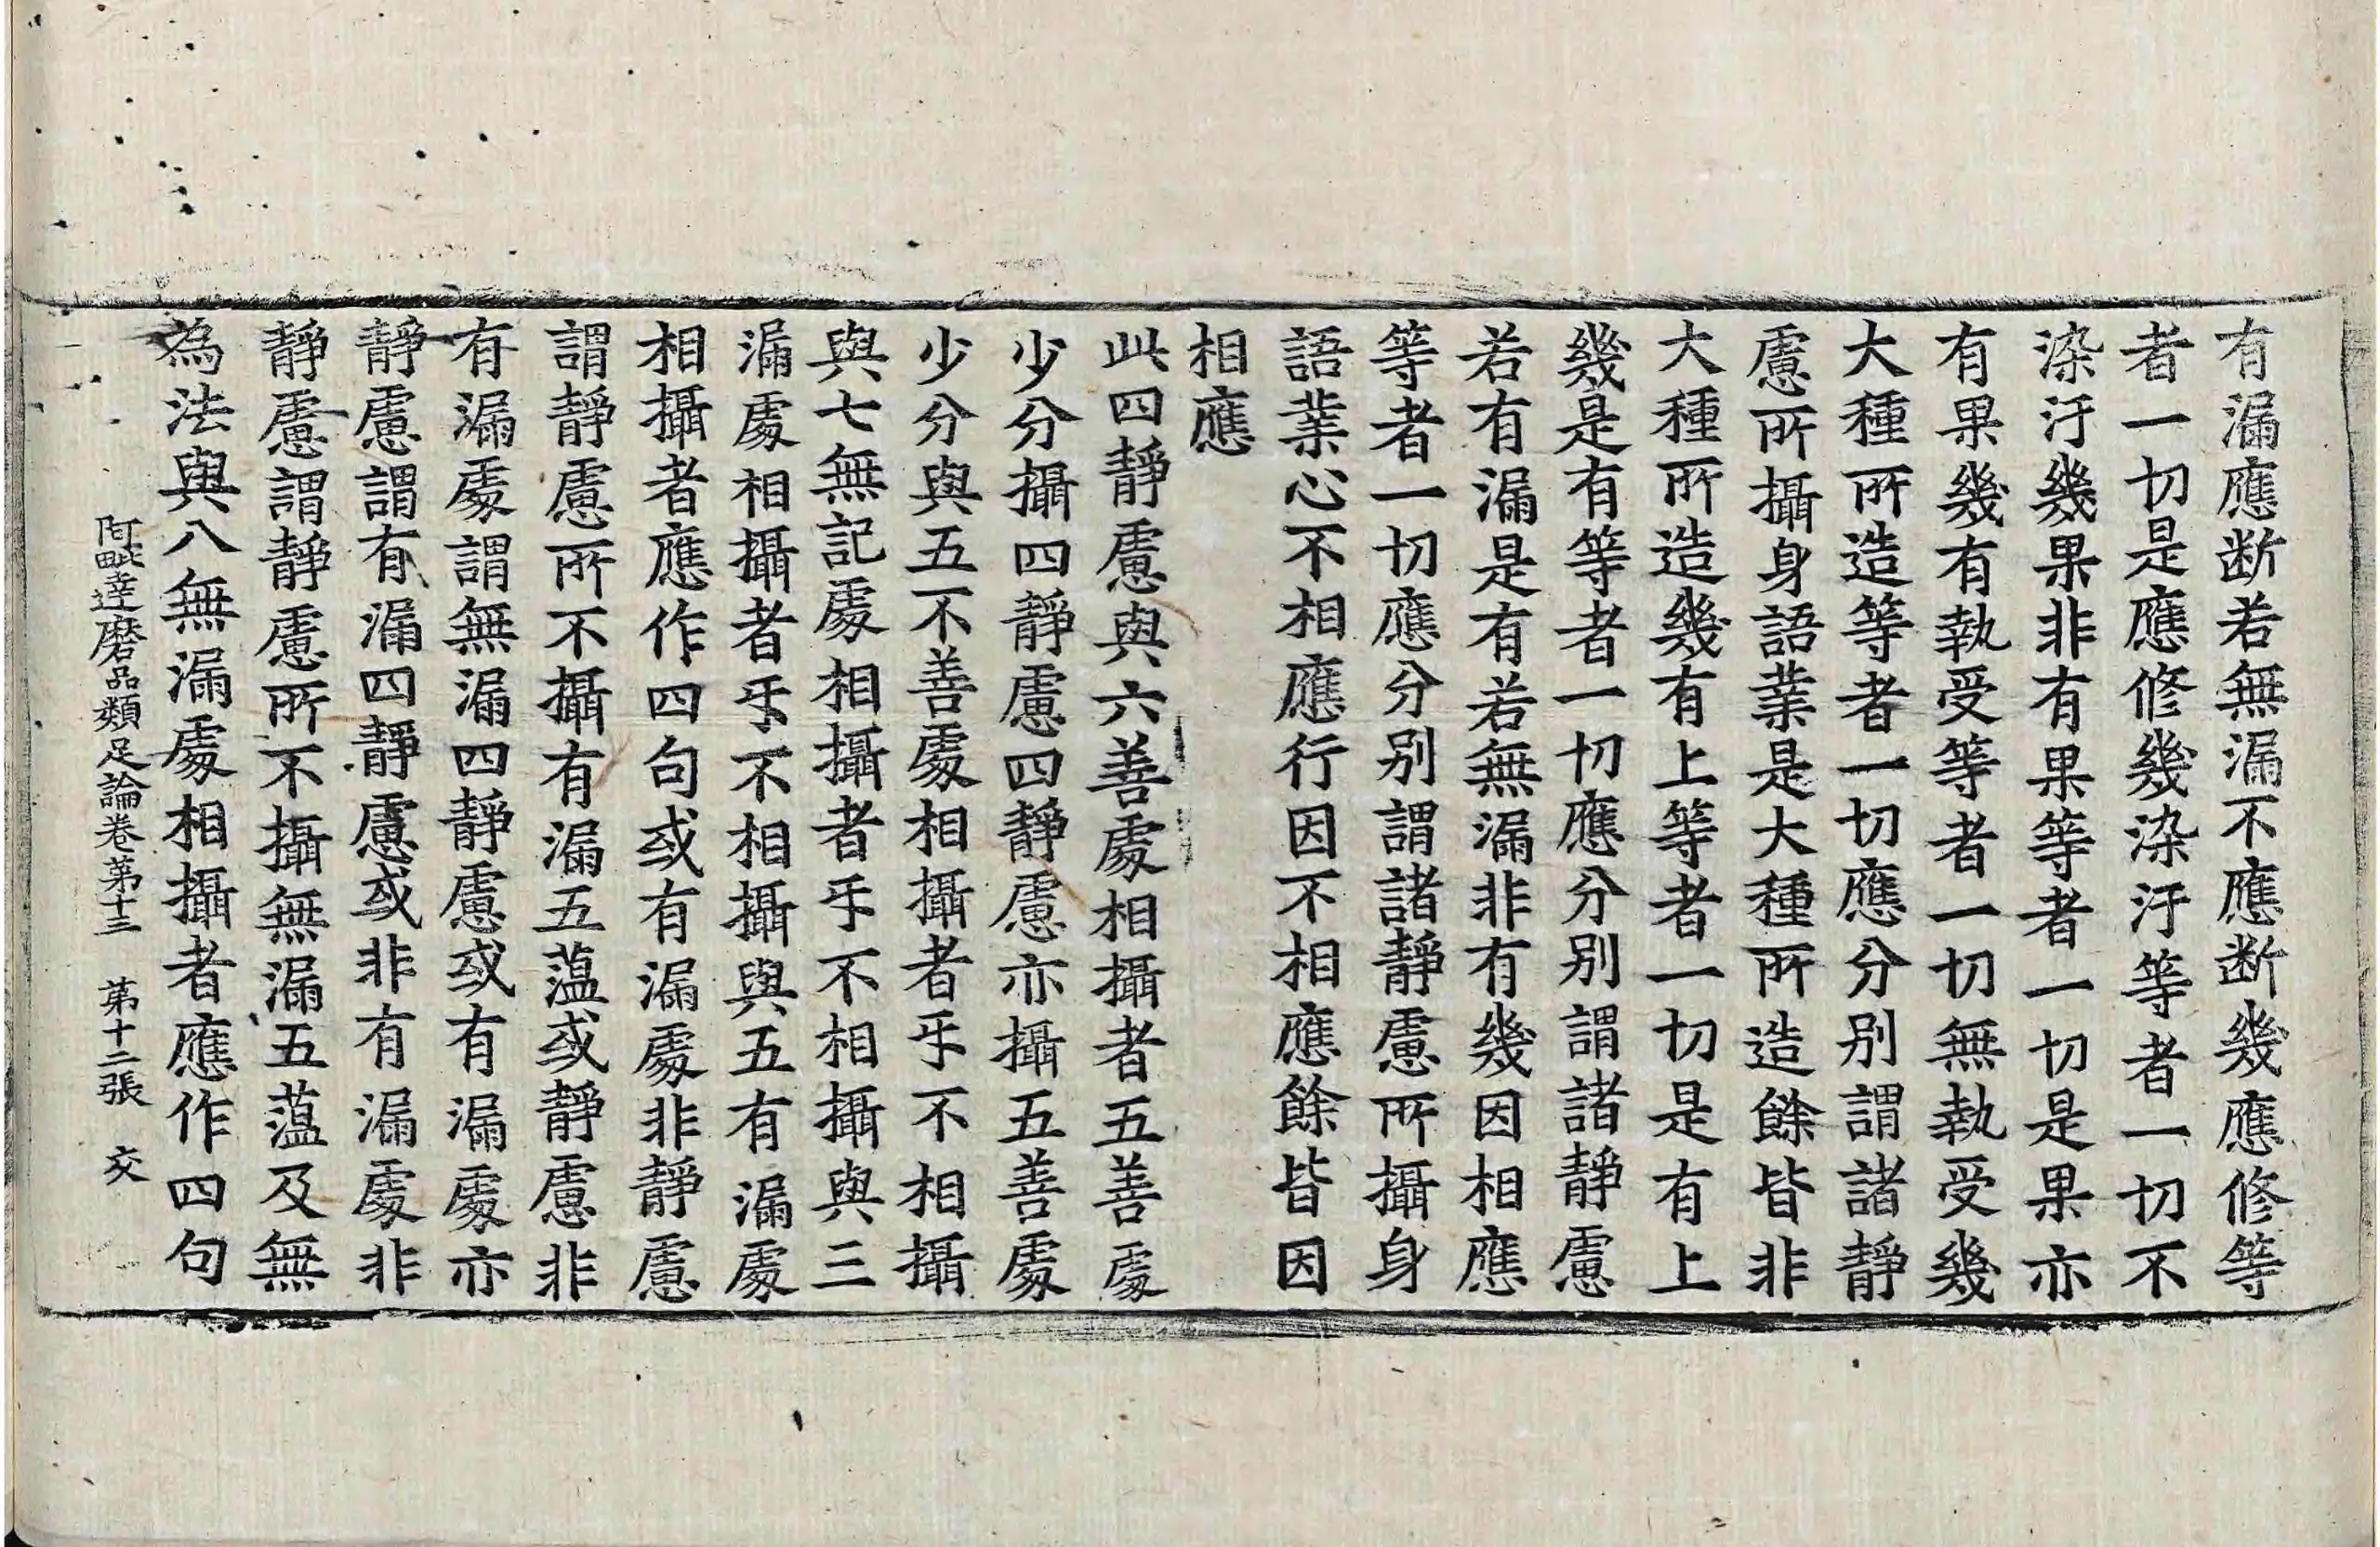 有漏應断若無漏不應断幾應修等
者一切是應修幾染汙等者一切不
染汙幾果非有果等者一切是果亦
有果幾有執受等者一切無執受幾
大種所造等者一切應分別謂諸靜
慮所攝身語業是大種所造餘皆非
大種所造幾有上等者一切是有上
幾是有等者一切應分別謂諸靜慮
若有漏是有若無漏非有幾因相應
等者一切應分別謂諸靜慮所攝身
語業心不相應行因不相應餘皆因
相應
此四靜慮與六善處相攝者五善處
少分攝四靜慮四靜慮亦攝五善處
少分與五不善處相攝者乎不相攝
與七無記處相攝者乎不相攝與三
漏處相攝者乎不相攝與五有漏處
相攝者應作四句或有漏處非靜慮
謂靜慮所不攝有漏五蕰或靜慮非
有漏處謂無漏四靜慮或有漏處亦
靜慮謂有漏四靜慮或非有漏處非
靜慮謂靜慮所不攝無漏五蕰及無
為法與八無漏處相攝者應作四句
阿毗達磨品類足論卷苐十三 苐十二張 交